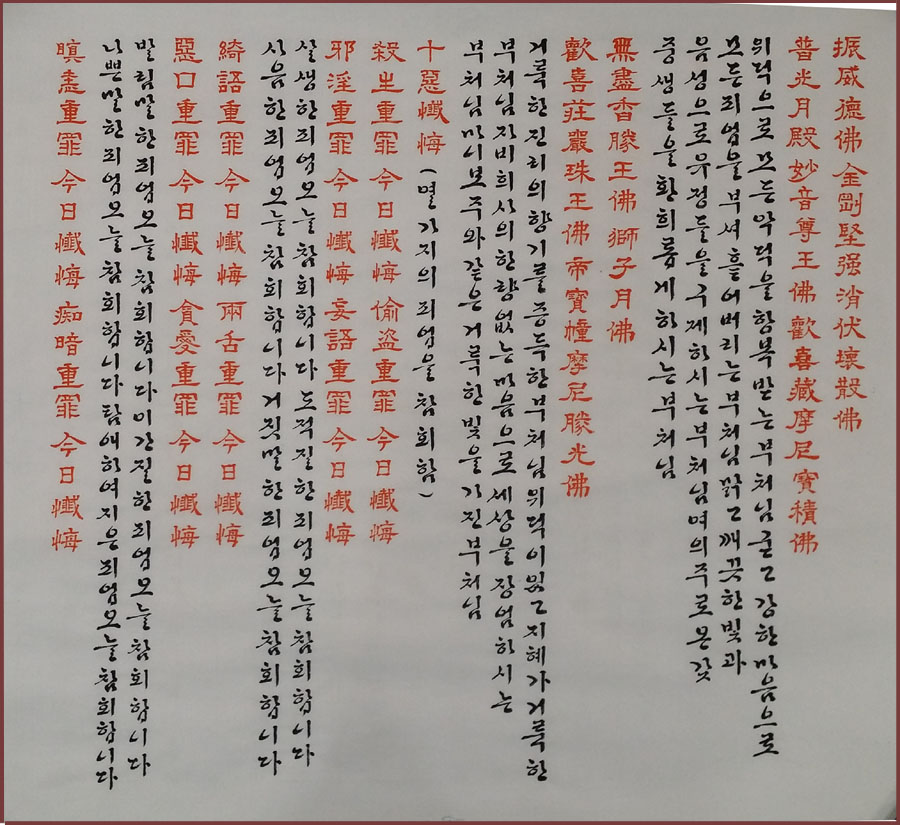 振威德佛金剛堅强消伏壞散佛
普光月殿妙音尊王佛歡喜藏摩尼寶積佛
위덕으로 모든 악덕을 항복 받는 부처님 굳고 강한 마음으로
모든 죄업을 부셔 흩어버리는 부처님 맑고 깨끗한 빛과
음성으로 유정들을 구제하시는 부처님 여의주로 온갖
중생들을 환희롭게 하시는 부처님
無盡香勝王佛獅子月佛
歡喜莊嚴珠王佛帝寶幢摩尼勝光佛
거룩한 진리의 향기를 증득한 부처님 위덕이 있고 지혜가 거룩한
부처님 자비희사의 한량없는 마음으로 세상을 장엄하시는
부처님 마니보주와 같은 거룩한 빛을 가진 부처님
十惡懺悔 (열 가지의 죄업을 참회함)
殺生重罪 今日懺悔 偷盜重罪 今日懺悔
邪淫重罪 今日懺悔 妄語重罪 今日懺悔
살생한 죄업 오늘 참회합니다 도적질한 죄업 오늘 참회합니다
사음한 죄업 오늘 참회합니다 거짓말한 죄업 오늘 참회합니다
綺語重罪 今日懺悔 兩舌重罪 今日懺悔
惡口重罪 今日懺悔 貪愛重罪 今日懺悔
발림말한 죄업 오늘 참회합니다 이간질한 죄업 오늘 참회합니다
나쁜말한 죄업 오늘 참회합니다 탐애하여 지은 죄업 오늘 참회합니다
瞋恚重罪 今日懺悔 痴暗重罪 今日懺悔